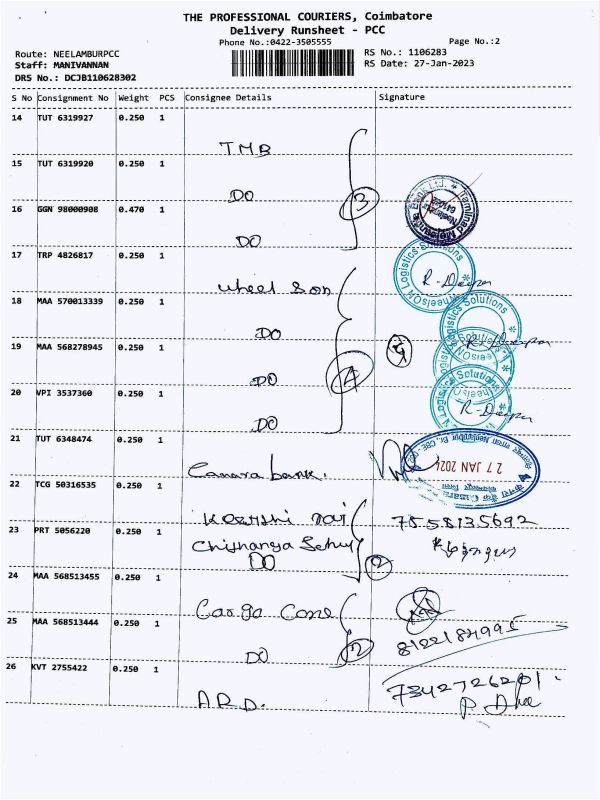 THE PROFESSIONAL COURIERS, Coimbatore
Delivery Runsheet - PCC
Phone No.:0422-3505555
Page No.:2
Route: NEELAMBURPCC
RS No.: 1106283
Staff: MANIVANNAN
RS Date: 27-Jan-2023
DRS No.: DCJB110628302
S No Consignment No Weight PCS Consignee Details Signature
14 TUT 6319927 0.250 1
TMB
15 TUT 6319920 0.250 1
DO
3
16 GGN 98000908 0.470 1
DO
17 TRP 4826817 0.250 1
wheel Son
R-Deepa
18 MAA 570013339 0.250 1
DO
19 MAA 568278945 0.250 1
DO
4
20 VPI 3537360 0.250 1
DO
21 TUT 6348474 0.250 1
Canara bank.
27 JAN 2024
22 TCG 50316535 0.250 1
Keerthi raj
7558135692
23 PRT 5056220 0.250 1
DO
2
24 MAA 568513455 0.250 1
Cargo Cone
25 MAA 568513444 0.250 1
DO
2
26 KVT 2755422 0.250 1
7342726201
A.R.D.